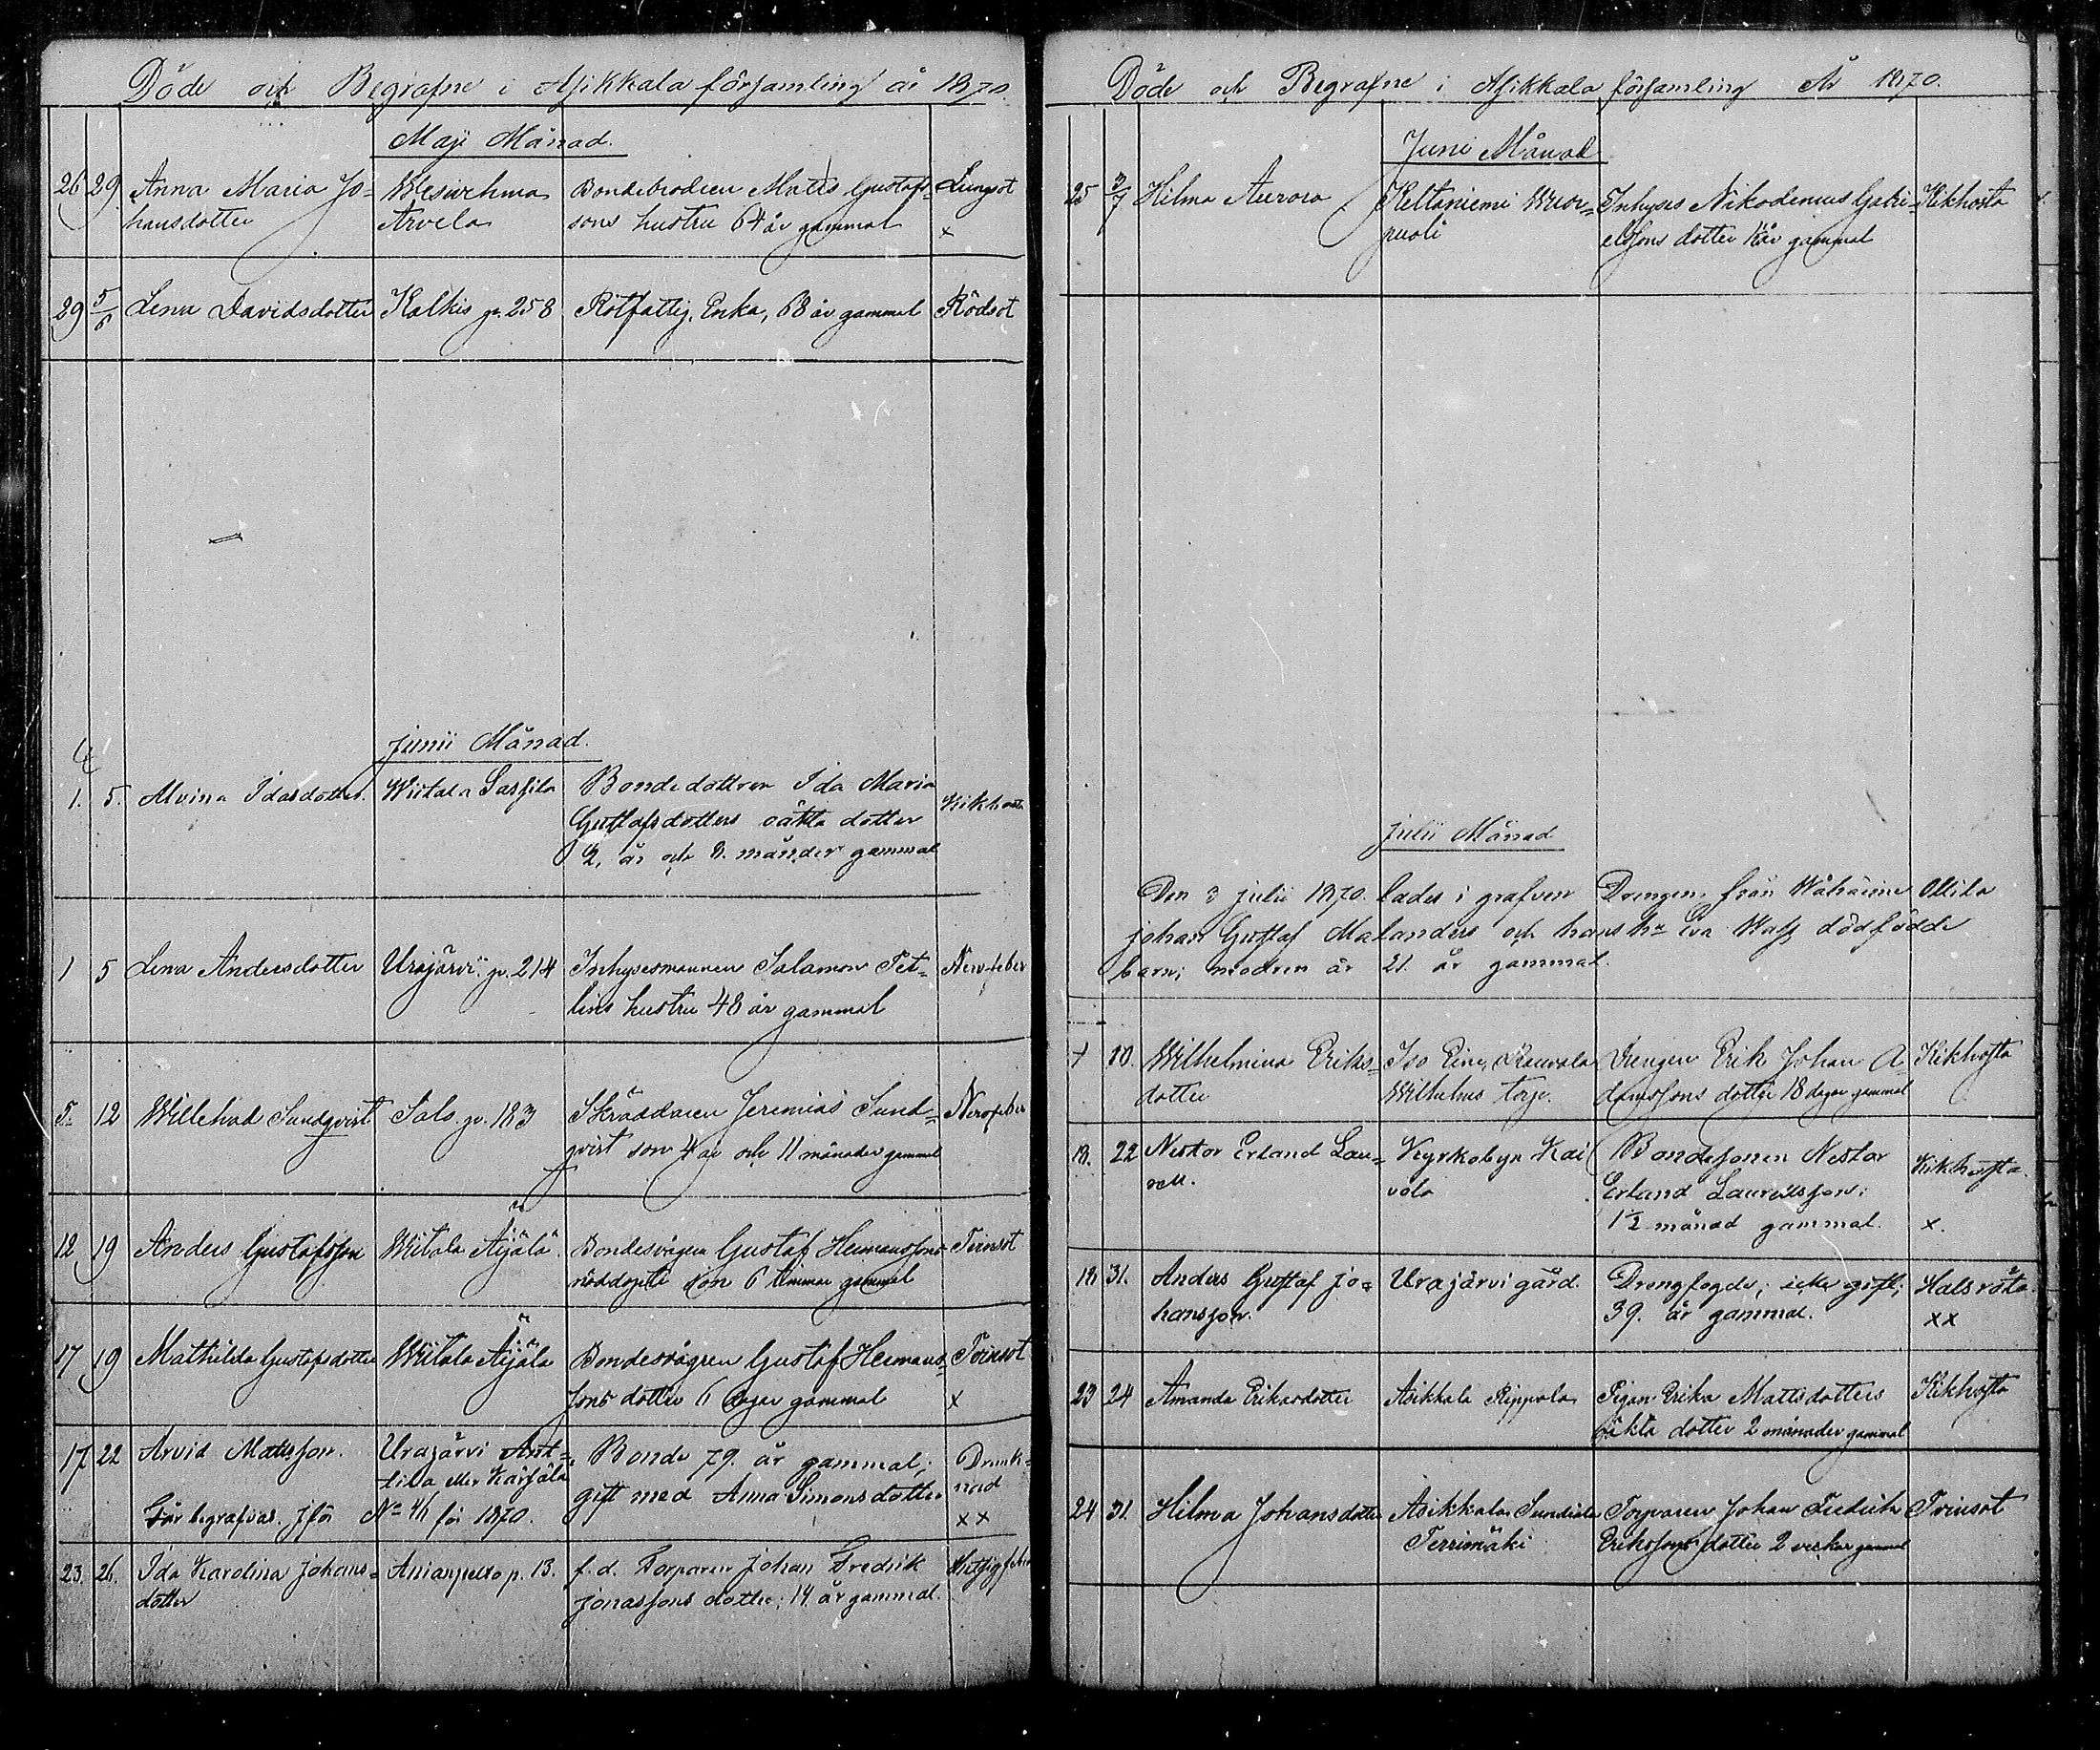 Döde och Begrafne i Asikkala församling år 1870.
Maji Månad.
26 29 Anna Maria Jo- Wesivehma Bondebrodren Matts Gustafs- Lungsot
hansdotter Arvela sons hustru 64 år gammal x
29 5/6 Lena Davidsdotter Kalkis gr. 258 Rotfattig, Enka, 68 år gammal Rödsot
Junii Månad.
1. 5. Alvina Idasdotter. Wiitala Sassila Bondedottren Ida Maria Kikhosta
Gustafsdotters oäkta dotter
2. år och 8. månader gammal
1 5 Lena Andersdotter Urajärvi gr. 214 Inhysesmannen Salamon Pet- Nervfeber
lins hustru 48 år gammal
5. 12 Willehad Sundqvist Salo gr. 183 Skräddaren Jeremias Sund- Nervfeber
qvist son 4 år och 11 månader gammal
12 19 Anders Gustafsson Wiitala Äijälä Bondesvågern Gustaf Hemanssons Trinsot
nöddöpte son 6 timmar gammal
17 19 Mathilda Gustafsdotter Wiitala Äijälä Bondesvågren Gustaf Hemans- Trinsot
sons dotter 6 dagar gammal x
17 22 Arvid Mattsson. Urajärvi Ant- Bonde 79. år gammal; Drunk-
tila eller Kärjälä gift med Anna Simonsdotter nad
Får begrafvas. Jför No 41 för 1870. xx
23. 26. Ida Karolina Johans- Anianpelto p. 13. f. d. Torparen Johan Fredrik Hetsig feber
dotter Jonassons dotter; 14 år gammal.
Döde och Begrafne i Asikkala församling År 1870.
Juni Månad
25 3/7 Hilma Aurora Keltaniemi Wuor- Inhyses Nikodemus Gabri- Kikhosta
puoli elssons dotter 1 år gammal
Julii Månad
Den 3 julii 1870. lades i grafven Drengen från Wähäime Ollila
Johan Gustaf Malanders och hans hu Eva Wass dödfödde
barn; modren är 21. år gammal.
7 10. Wilhelmina Eriks- Iso Eine, Rauvala Drengen Erik Johan A- Kikhosta
dotter Wilhelms torp. damssons dotter 18 dagar gammal
18. 22 Nestor Erland Lau- Kyrkobyn Kai Bondesonen Nestor Kikhosta
rell. vola Erland Laurellsson:
1 1/2 månad gammal. x.
18 31. Anders Gustaf Jo- Urajärvi gård. Drengfogde; icke gift; Halsröta
hansson. 39. år gammal. xx
23 24 Amanda Erikasdotter Asikkala Reppala Pigan Erika Mattsdotters Kikhosta
oäkta dotter 2 månader gammal
24 31. Hilma Johansdotter Asikkala Torparen Johan Fredrik Trinsot
Terrimäki Erikssons dotter 2 veckor gammal